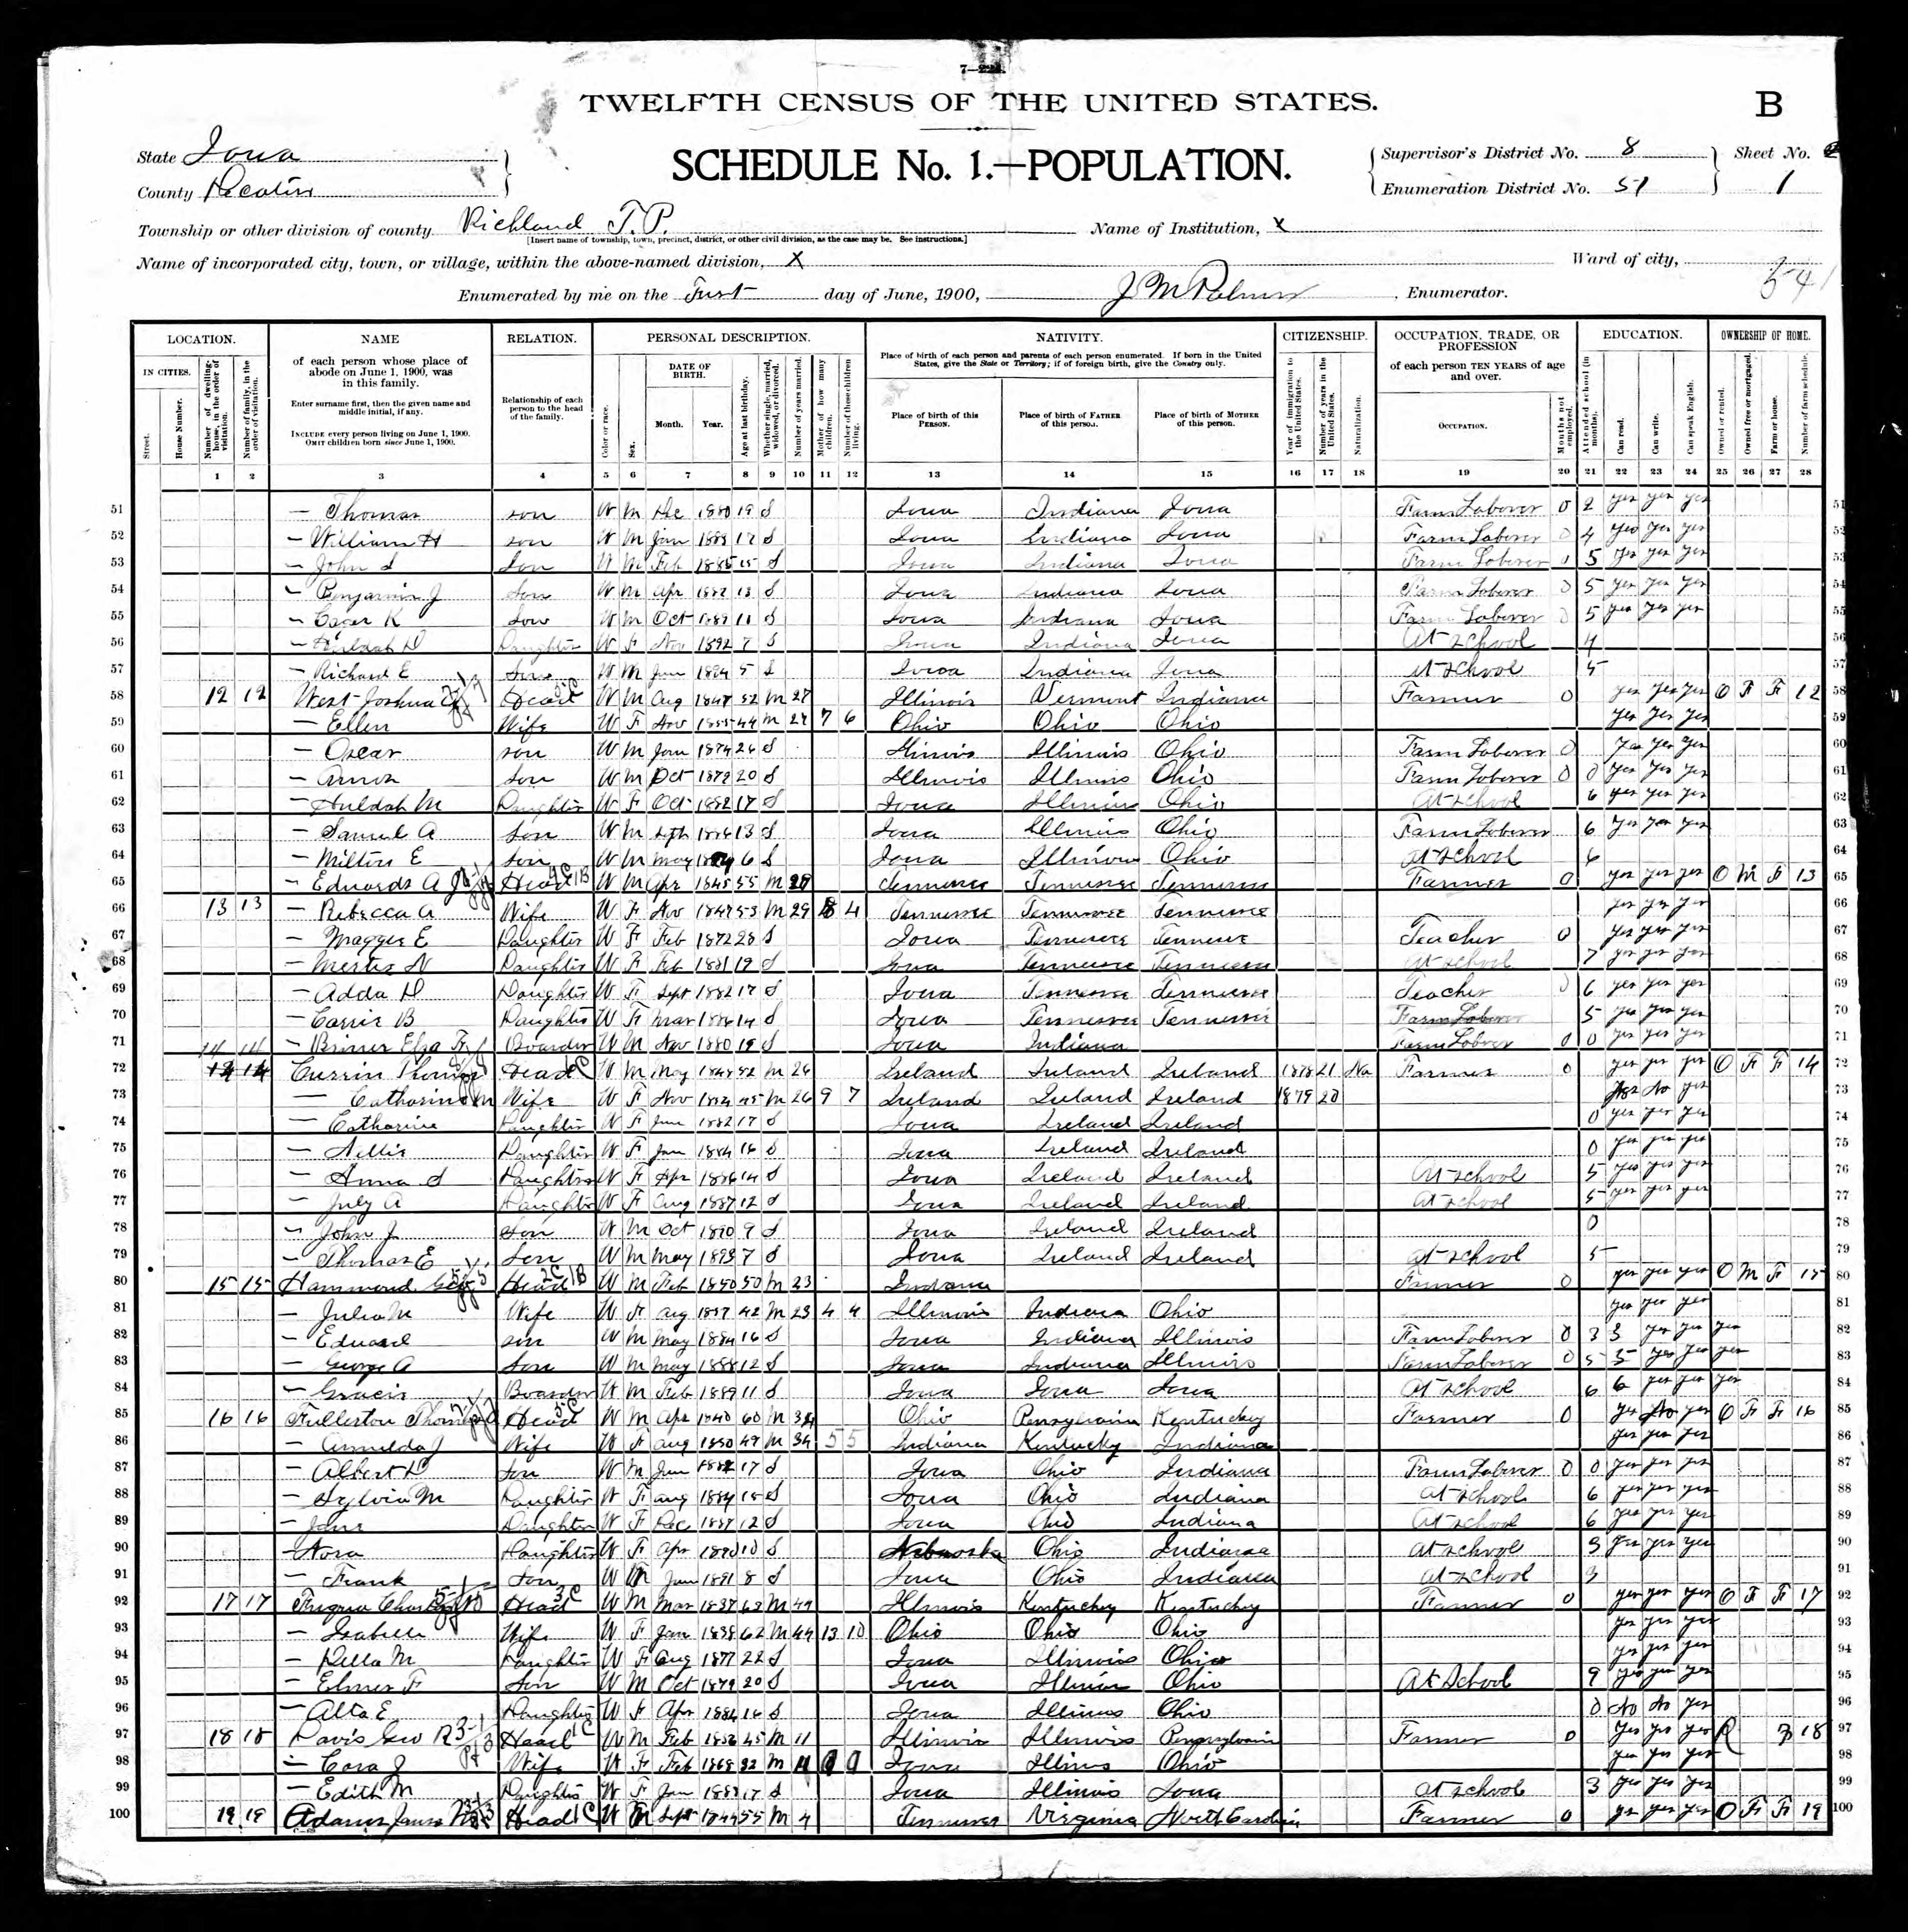 7—224.
TWELFTH CENSUS OF THE UNITED STATES.
B
State Iowa
County
SCHEDULE No. 1.—POPULATION.
Supervisor's District No. 8
Enumeration District No. 51
Sheet No.
1
Township or other division of county Richland T.P.
[Insert name of township, town, precinct, district, or other civil division, as the case may be. See instructions.]
Name of Institution, X
Name of incorporated city, town, or village, within the above-named division, X
Ward of city,
Enumerated by me on the First day of June, 1900, J M Palmer, Enumerator.
LOCATION. NAME RELATION. PERSONAL DESCRIPTION. NATIVITY. CITIZENSHIP. OCCUPATION, TRADE, OR PROFESSION EDUCATION. OWNERSHIP OF HOME.
IN CITIES.
Street.
House Number.
Number of dwelling-house, in the order of visitation.
Number of family, in the order of visitation.
of each person whose place of abode on June 1, 1900, was in this family.
Enter surname first, then the given name and middle initial, if any.
INCLUDE every person living on June 1, 1900.
OMIT children born since June 1, 1900.
Relationship of each person to the head of the family.
Color or race.
Sex.
DATE OF BIRTH.
Month. Year.
Age at last birthday.
Whether single, married, widowed, or divorced.
Number of years married.
Mother of how many children.
Number of these children living.
Place of birth of each person and parents of each person enumerated. If born in the United States, give the State or Territory; if of foreign birth, give the Country only.
Place of birth of this PERSON.
Place of birth of FATHER of this person.
Place of birth of MOTHER of this person.
Year of immigration to the United States.
Number of years in the United States.
Naturalization.
of each person TEN YEARS of age and over.
OCCUPATION.
Months not employed.
Attended school (in months).
Can read.
Can write.
Can speak English.
Owned or rented.
Owned free or mortgaged.
Farm or house.
Number of farm schedule.
1 2 3 4 5 6 7 8 9 10 11 12 13 14 15 16 17 18 19 20 21 22 23 24 25 26 27 28
51 — Thomas son W M Dec 1880 19 S Iowa Indiana Iowa Farm Laborer 0 2 yes yes yes 51
52 — William H son W M Jan 17 S Iowa Indiana Iowa Farm Laborer 0 4 yes yes yes 52
53 — John S Son W M Feb 1885 15 S Iowa Indiana Iowa Farm Laborer 0 5 yes yes yes 53
54 — Benjamin J Son W M Apr 13 S Iowa Indiana Iowa Farm Laborer 0 5 yes yes yes 54
55 — K Son W M Oct 11 S Iowa Indiana Iowa Farm Laborer 0 5 yes yes yes 55
56 — Huldah D Daughter W F Nov 1892 7 S Iowa Indiana Iowa At School 4 56
57 — Richard E Son W M Jun 1894 5 S Iowa Indiana Iowa At School 5 57
58 12 12 West Joshua Head W M Aug 1847 52 M 27 Illinois Vermont Indiana Farmer 0 yes yes yes O F F 12 58
59 — Ellen Wife W F Nov 1855 44 M 27 7 6 Ohio Ohio Ohio yes yes yes 59
60 — Oscar son W M Jan 1874 26 S Illinois Illinois Ohio Farm Laborer 0 yes yes yes 60
61 — son W M Oct 1879 20 S Illinois Illinois Ohio Farm Laborer 0 0 yes yes yes 61
62 — Huldah M Daughter W F Oct 1882 17 S Iowa Illinois Ohio At School 6 yes yes yes 62
63 — Samuel A Son W M Sept 1886 13 S Iowa Illinois Ohio Farm Laborer 6 yes yes yes 63
64 — Milton E son W M May 6 S Iowa Illinois Ohio At School 6 64
65 — Edwards A Head W M Apr 1845 55 M 29 Tennessee Tennessee Tennessee Farmer 0 yes yes yes O M F 13 65
66 13 13 — Rebecca A Wife W F Nov 1847 53 M 29 4 Tennessee Tennessee Tennessee yes yes yes 66
67 — Maggie E Daughter W F Feb 1872 28 S Iowa Tennessee Tennessee Teacher 0 yes yes yes 67
68 — N Daughter W F Feb 1881 19 S Iowa Tennessee Tennessee At School 7 yes yes yes 68
69 — Adda D Daughter W F Sept 1882 17 S Iowa Tennessee Tennessee Teacher 0 6 yes yes yes 69
70 — Carrie B Daughter W F Mar 1886 14 S Iowa Tennessee Tennessee Farm Laborer 5 yes yes yes 70
71 14 14 — Boarder W M Nov 1880 19 S Iowa Indiana Farm Laborer 0 0 yes yes yes 71
72 14 14 Currin Thomas Head W M May 1848 52 M 26 Ireland Ireland Ireland 1878 21 Na Farmer 0 yes yes yes O F F 14 72
73 — Catharine M Wife W F Nov 1854 45 M 26 9 7 Ireland Ireland Ireland 1879 20 No yes 73
74 — Catharine Daughter W F Jun 1882 17 S Iowa Ireland Ireland 0 yes yes yes 74
75 — Nellie Daughter W F Jan 1884 16 S Iowa Ireland Ireland 0 yes yes yes 75
76 — Anna S Daughter W F Apr 1886 14 S Iowa Ireland Ireland At School 5 yes yes yes 76
77 — July A Daughter W F Aug 1887 12 S Iowa Ireland Ireland At School 5 yes yes yes 77
78 — John J Son W M Oct 1890 9 S Iowa Ireland Ireland 0 78
79 — Thomas E Son W M May 1893 7 S Iowa Ireland Ireland At School 5 79
80 15 15 Hammond Geo Head W M Feb 1850 50 M 23 Indiana Farmer 0 yes yes yes O M F 15 80
81 — Julia M Wife W F Aug 1857 42 M 23 4 4 Illinois Indiana Ohio yes yes yes 81
82 — Edward son W M May 1884 16 S Iowa Indiana Illinois Farm Laborer 0 3 3 yes yes yes 82
83 — George A Son W M May 1888 12 S Iowa Indiana Illinois Farm Laborer 0 5 5 yes yes yes 83
84 — Gracie Boarder W M Feb 1889 11 S Iowa Iowa Iowa At School 6 6 yes yes yes 84
85 16 16 Fullerton Thomas Head W M Apr 1840 60 M 34 Ohio Pennsylvania Kentucky Farmer 0 yes No yes O F F 16 85
86 — J Wife W F Aug 1850 49 M 34 5 5 Indiana Kentucky Indiana yes yes yes 86
87 — Albert D Son W M Jun 1882 17 S Iowa Ohio Indiana Farm Laborer 0 0 yes yes yes 87
88 — Sylvia M Daughter W F Aug 1884 15 S Iowa Ohio Indiana At School 6 yes yes yes 88
89 — Jane Daughter W F Dec 1887 12 S Iowa Ohio Indiana At School 6 yes yes yes 89
90 — Nora Daughter W F Apr 1890 10 S Nebraska Ohio Indiana At School 3 yes yes yes 90
91 — Frank Son W M Jun 1891 8 S Iowa Ohio Indiana At School 3 91
92 17 17 Head W M Mar 1837 63 M 44 Illinois Kentucky Kentucky Farmer 0 yes yes yes O F F 17 92
93 — Isabelle Wife W F Jan 1838 62 M 44 13 10 Ohio Ohio Ohio yes yes yes 93
94 — Della M Daughter W F Aug 1877 22 S Iowa Illinois Ohio yes yes yes 94
95 — Elmer F Son W M Oct 1879 20 S Iowa Illinois Ohio At School 9 yes yes yes 95
96 — Alta E Daughter W F Apr 1884 16 S Iowa Illinois Ohio 0 No No yes 96
97 18 18 Davis Geo R Head W M Feb 45 M 11 Illinois Illinois Pennsylvania Farmer 0 yes yes yes R 18 97
98 — Cora J Wife W F Feb 1868 32 M 11 Iowa Illinois Ohio yes yes yes 98
99 — Edith M Daughter W F Jan 1883 17 S Iowa Illinois Iowa At School 3 yes yes yes 99
100 19 19 Adams James Head W M Sept 1844 55 M 4 Tennessee Virginia North Carolina Farmer 0 yes yes yes O F F 19 100